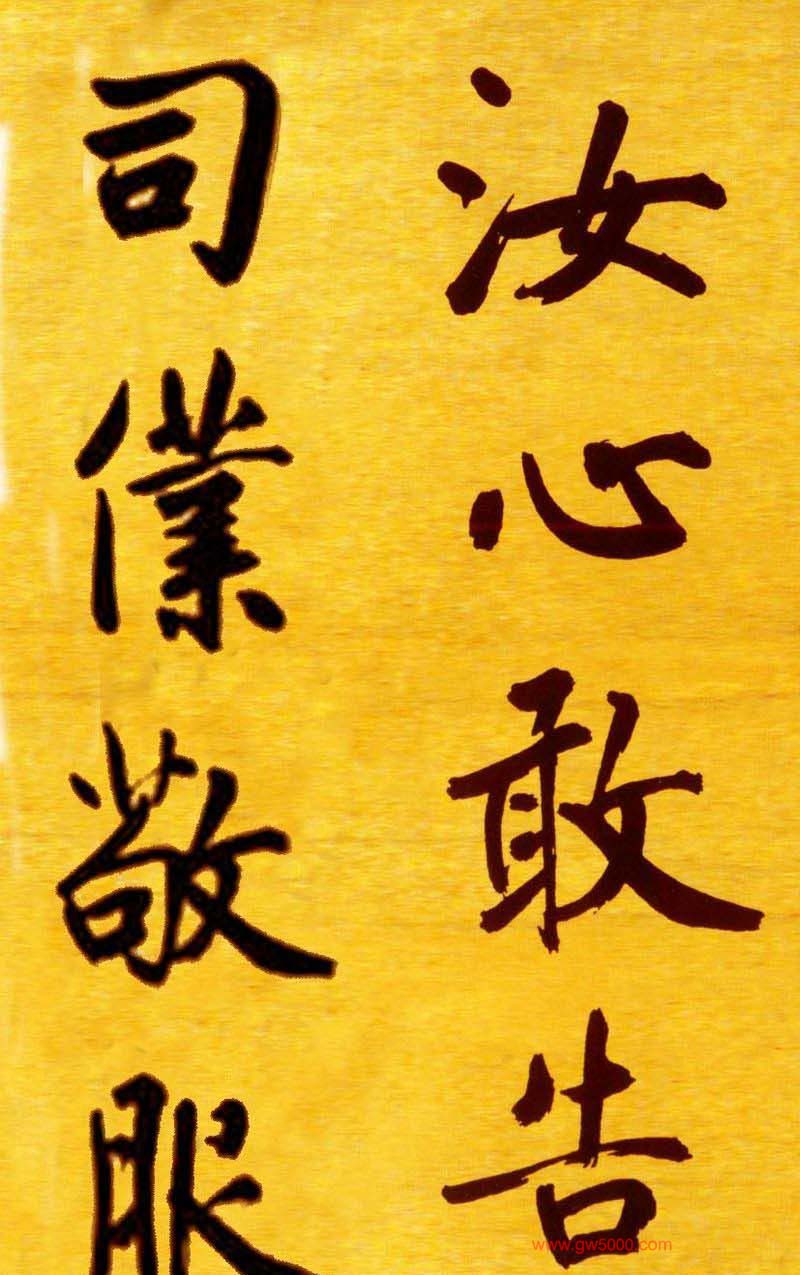 汝心敢告
司僕敬服
www.gw5000.com